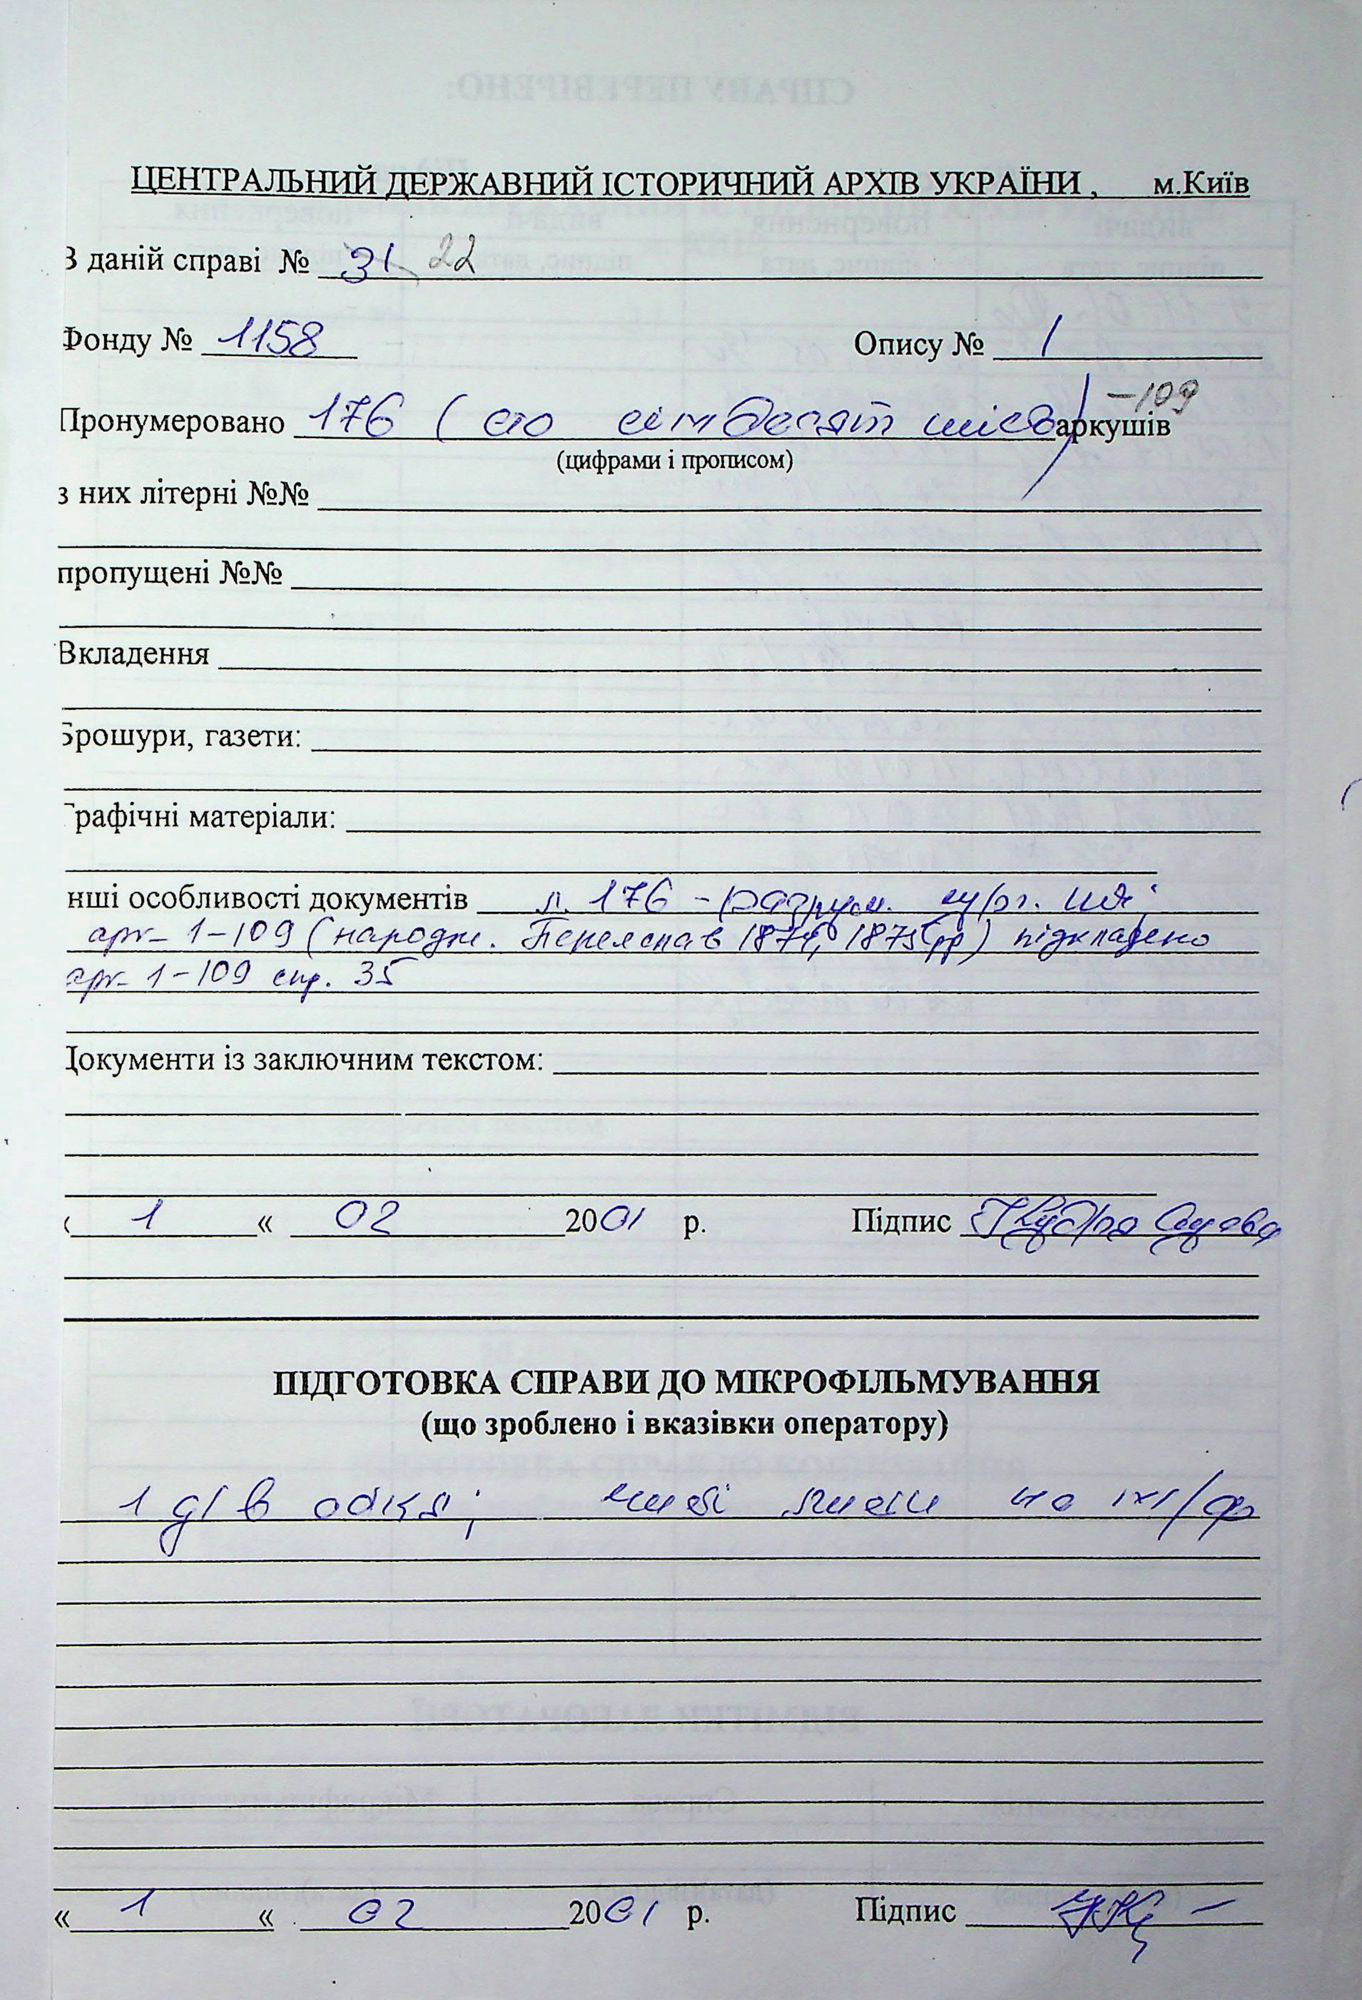 ЦЕНТРАЛЬНИЙ ДЕРЖАВНИЙ ІСТОРИЧНИЙ АРХІВ УКРАЇНИ , м.Київ
В даній справі № 31 22
Фонду № 1158 Опису № 1
Пронумеровано 176 (сто сімдесят шість) аркушів –109
(цифрами і прописом)
з них літерні №№
пропущені №№
Вкладення
Брошури, газети:
Графічні матеріали:
нші особливості документів л. 176 –
арк. 1–109 (народж. Переяслав 1874, 1875 рр) підкладено
арк. 1–109 спр. 35
Документи із заключним текстом:
« 1 « 02 2001 р. Підпис
ПІДГОТОВКА СПРАВИ ДО МІКРОФІЛЬМУВАННЯ
(що зроблено і вказівки оператору)
1 д/в
« 1 « 02 2001 р. Підпис